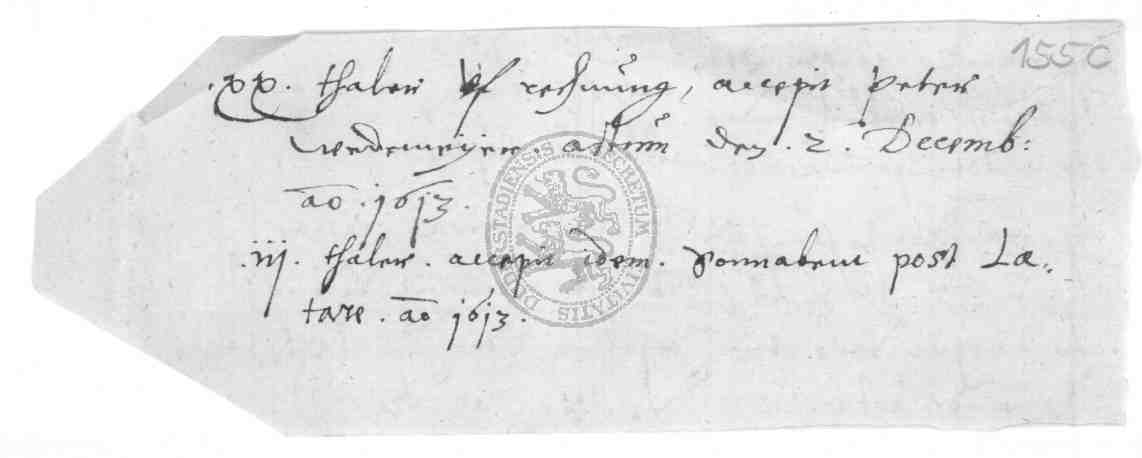 1550
.xx. thaler vf rechnung, accepit Peter
Wedemeyer. actum den. 2. Decemb:
ao. 1613.
.iij. thaler. accepit idem. Sonnabent post Læ„
tare. ao 1613.
SECRETUM CIVITATIS